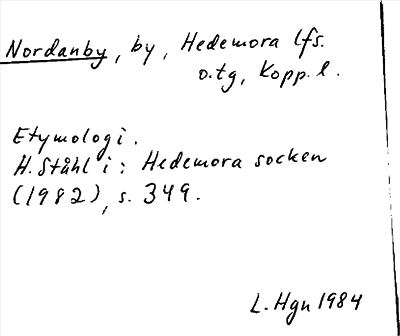 Nordanby, by, Hedemora lfs.
o.tg, Kopp. l.
Etymologi.
H. Ståhl i: Hedemora socken
(1982), s. 349.
L. Hgn 1984